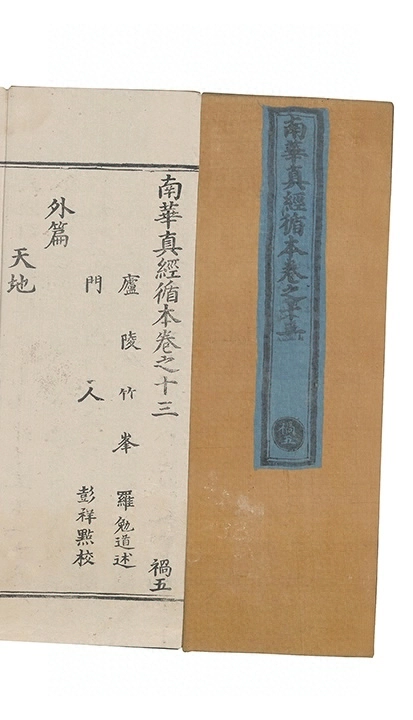 南華真經循本卷之
禍五
南華真經循本卷之十三
禍五
廬陵竹峯 羅勉道述
門人 彭祥點校
外篇
天地